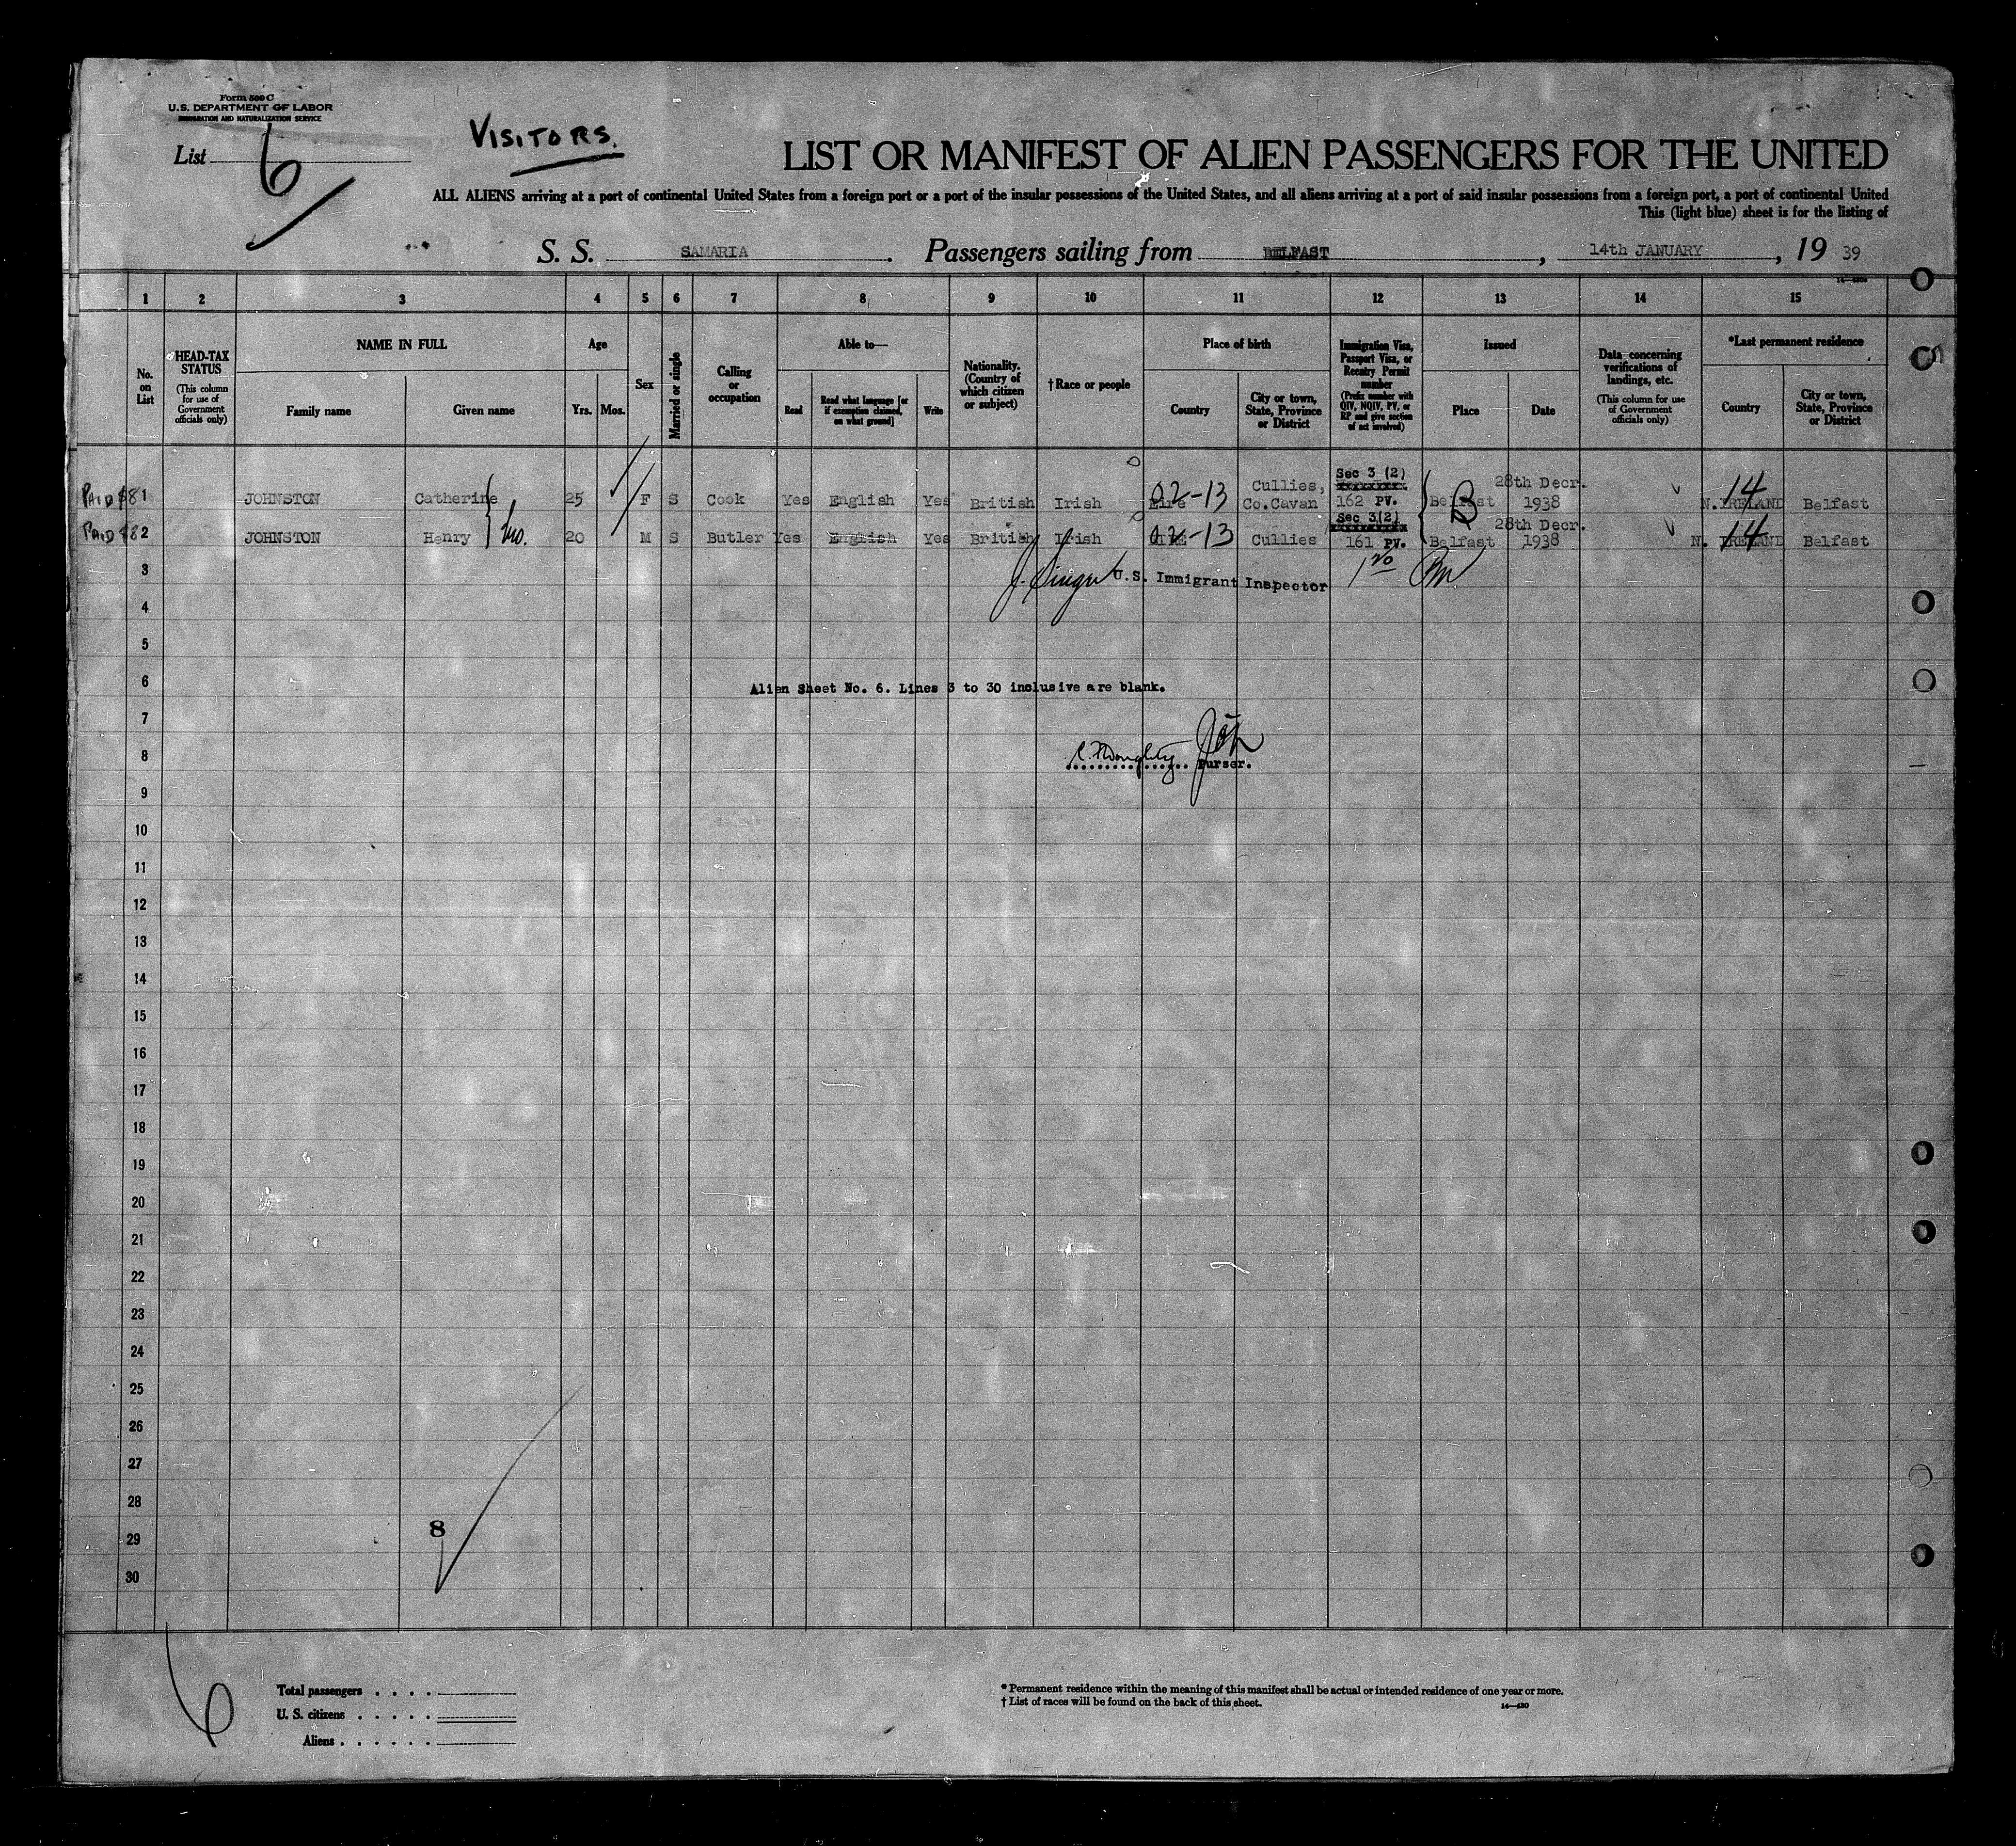 Form 500 C
U.S. DEPARTMENT OF LABOR
IMMIGRATION AND NATURALIZATION SERVICE
List 6
VISITORS.
LIST OR MANIFEST OF ALIEN PASSENGERS FOR THE UNITED
ALL ALIENS arriving at a port of continental United States from a foreign port or a port of the insular possessions of the United States, and all aliens arriving at a port of said insular possessions from a foreign port, a port of continental United
This (light blue) sheet is for the listing of
S. S. SAMARIA. Passengers sailing from BELFAST, 14th JANUARY, 19 39
1 2 3 4 5 6 7 8 9 10 11 12 13 14 15
No. on List
HEAD-TAX STATUS
(This column for use of Government officials only)
NAME IN FULL
Family name
Given name
Age
Yrs. Mos.
Sex
Married or single
Calling or occupation
Able to—
Read
Read what language [or if exemption claimed, on what ground]
Write
Nationality. (Country of which citizen or subject)
† Race or people
Place of birth
Country
City or town, State, Province or District
Immigration Visa, Passport Visa, or Reentry Permit number
(Prefix number with QIV, NQIV, PV, or RP and give section of act involved)
Issued
Place
Date
Data concerning verifications of landings, etc.
(This column for use of Government officials only)
*Last permanent residence
Country
City or town, State, Province or District
PAID $8 1 JOHNSTON Catherine 25 F S Cook Yes English Yes British Irish Eire 02-13 Cullies, Co.Cavan Sec 3 (2) 162 PV. Belfast 28th Decr. 1938 N. IRELAND 14 Belfast
PAID $8 2 JOHNSTON Henry 20 M S Butler Yes English Yes British Irish 02-13 Cullies Sec 3(2) 161 PV. Belfast 28th Decr. 1938 N. IRELAND 14 Belfast
3 U.S. Immigrant Inspector
4
5
6 Alien Sheet No. 6. Lines 3 to 30 inclusive are blank.
7
8 Purser.
9
10
11
12
13
14
15
16
17
18
19
20
21
22
23
24
25
26
27
28
29 8
30
6
Total passengers
U. S. citizens
Aliens
* Permanent residence within the meaning of this manifest shall be actual or intended residence of one year or more.
† List of races will be found on the back of this sheet.